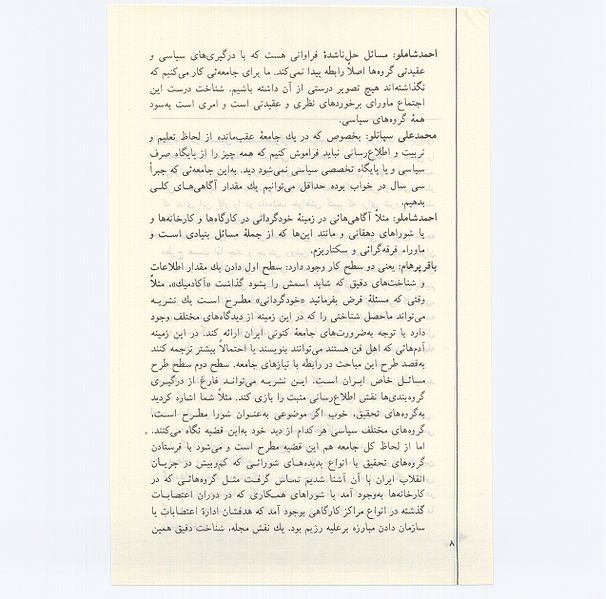 احمدشاملو: مسائل حل‌ناشدهٔ فراوانی هست که با درگیری‌های سیاسی و
عقیدتی گروه‌ها اصلاً رابطه پیدا نمی‌کند. ما برای جامعه‌ئی کار می‌کنیم که
نگذاشته‌اند هیچ تصویر درستی از آن داشته باشیم. شناخت درست این
اجتماع ماورای برخوردهای نظری و عقیدتی است و امری است به‌سود
همهٔ گروه‌های سیاسی.
محمدعلی سپانلو: بخصوص که در یك جامعهٔ عقب‌مانده از لحاظ تعلیم و
تربیت و اطلاع‌رسانی نباید فراموش کنیم که همه چیز را از پایگاه صرف
سیاسی و یا پایگاه تخصصی سیاسی نمی‌شود دید. به‌این جامعه‌ئی که جبراً
سی سال در خواب بوده حداقل می‌توانیم یك مقدار آگاهی‌های کلی
بدهیم.
احمدشاملو: مثلاً آگاهی‌هائی در زمینهٔ خودگردانی در کارگاه‌ها و کارخانه‌ها و
یا شوراهای دهقانی و مانند این‌ها که از جملهٔ مسائل بنیادی است و
ماوراء فرقه‌گرائی و سکتاریزم.
باقر پرهام: یعنی دو سطح کار وجود دارد: سطح اول دادن یك مقدار اطلاعات
و شناخت‌های دقیق که شاید اسمش را بشود گذاشت «آکادمیك»، مثلاً
وقتی که مسئلهٔ فرض بفرمائید «خودگردانی» مطرح است یك نشریه
می‌تواند ماحصل شناختی را که در این زمینه از دیدگاه‌های مختلف وجود
دارد با توجه به‌ضرورت‌های جامعهٔ کنونی ایران ارائه کند. در این زمینه
آدم‌هائی که اهل فن هستند می‌توانند بنویسند یا احتمالاً بیشتر ترجمه کنند
به‌قصد طرح این مباحث در رابطه با نیازهای جامعه. سطح دوم سطح طرح
مسائل خاص ایران است. این نشریه می‌تواند فارغ از درگیری
گروه‌بندی‌ها نقش اطلاع‌رسانی مثبت را بازی کند. مثلاً شما اشاره کردید
به‌گروه‌های تحقیق، خوب اگر موضوعی به‌عنوان شورا مطرح است،
گروه‌های مختلف سیاسی هر کدام از دید خود به‌این قضیه نگاه می‌کنند.
اما از لحاظ کل جامعه هم این قضیه مطرح است و می‌شود با فرستادن
گروه‌های تحقیق با انواع پدیده‌های شورائی که کم‌وبیش در جریان
انقلاب ایران با آن آشنا شدیم تماس گرفت مثل گروه‌هائی که در
کارخانه‌ها به‌وجود آمد یا شوراهای همکاری که در دوران اعتصابات
گذشته در انواع مراکز کارگاهی بوجود آمد که هدفشان ادارهٔ اعتصابات یا
سازمان دادن مبارزه برعلیه رژیم بود. یك نقش مجله، شناخت دقیق همین
۸